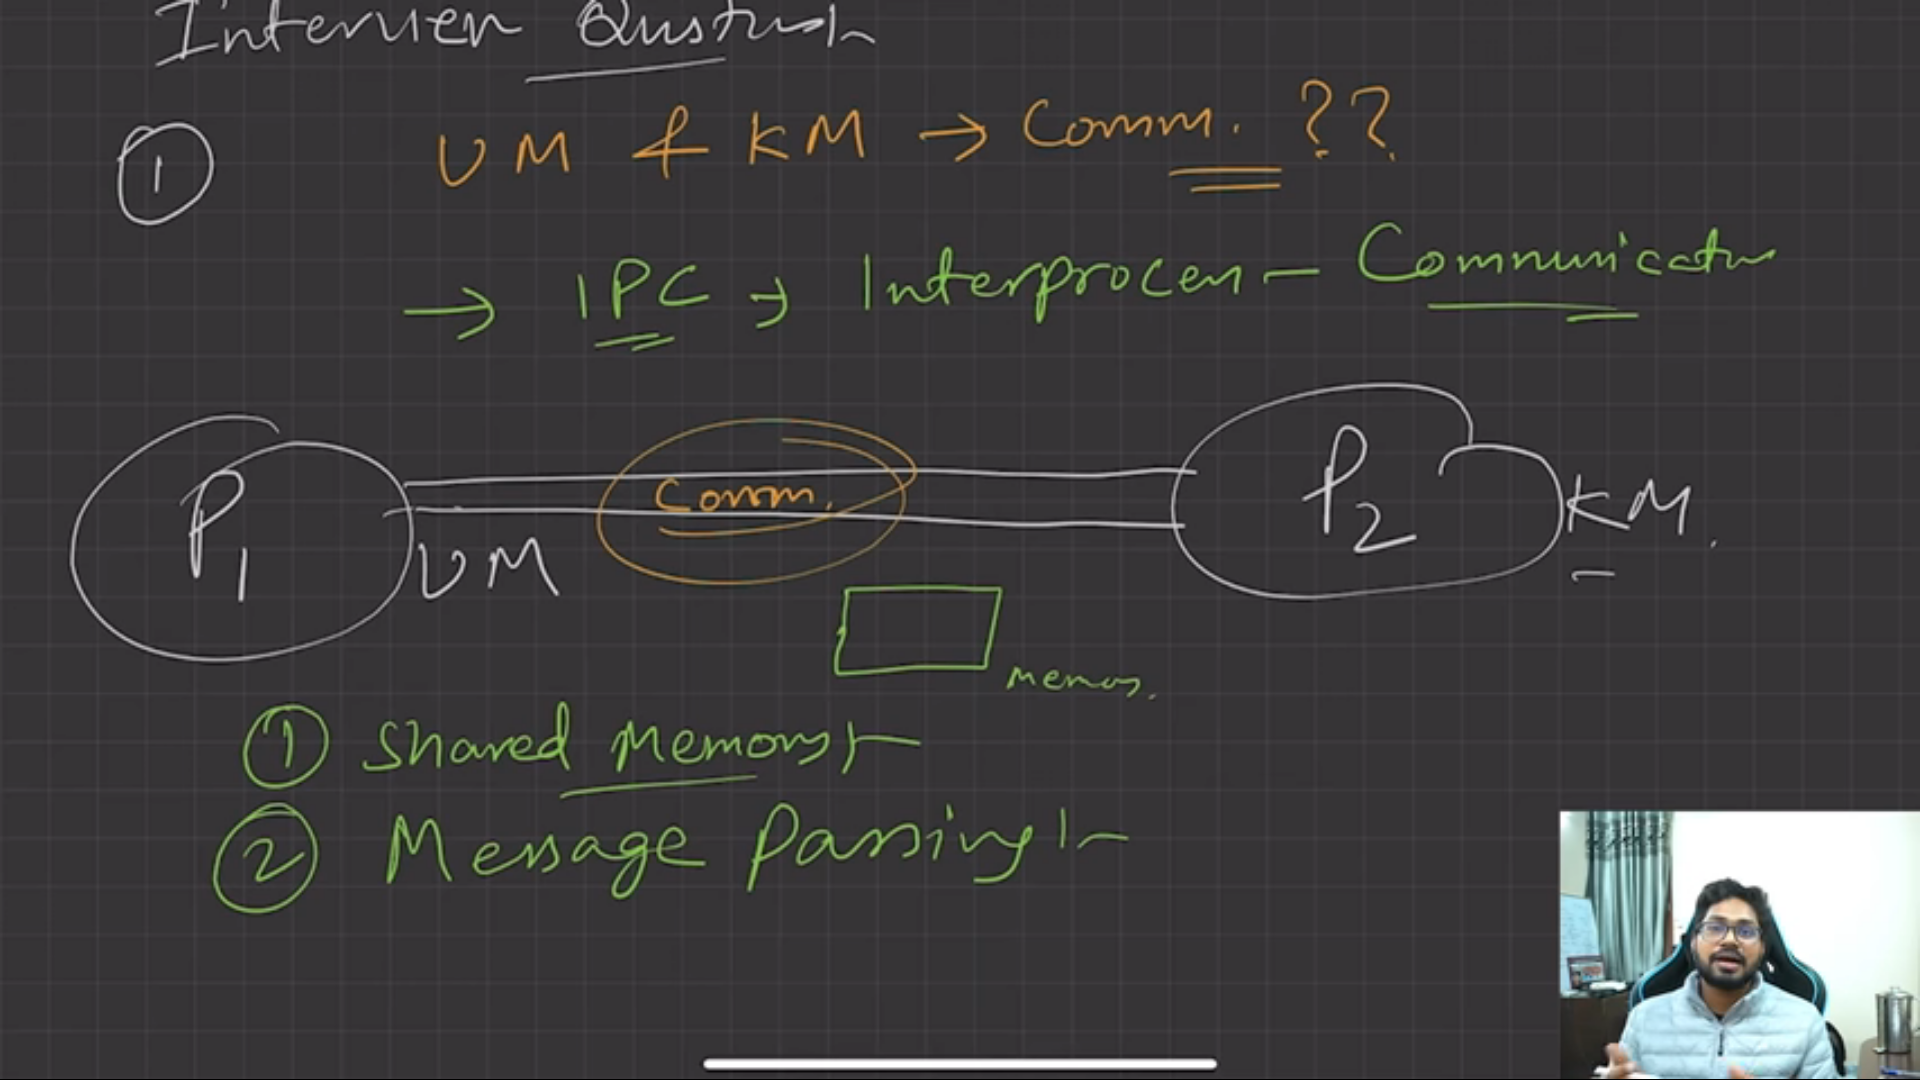 Interview Question
1 UM & KM → Comm. ??
→ IPC → Interprocess - Communication
P1 UM Comm. P2 KM.
Memory.
1 Shared Memory :-
2 Message Passing :-